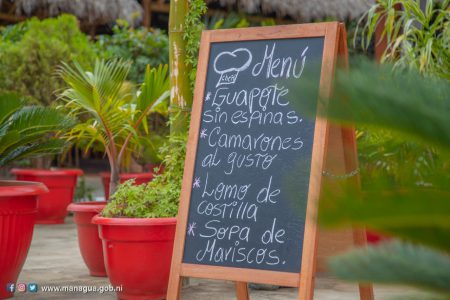 Chef Menú
* Guapote
sin espinas.
* Camarones
al gusto
* Lomo de
costilla
* Sopa de
Mariscos.
www.managua.gob.ni